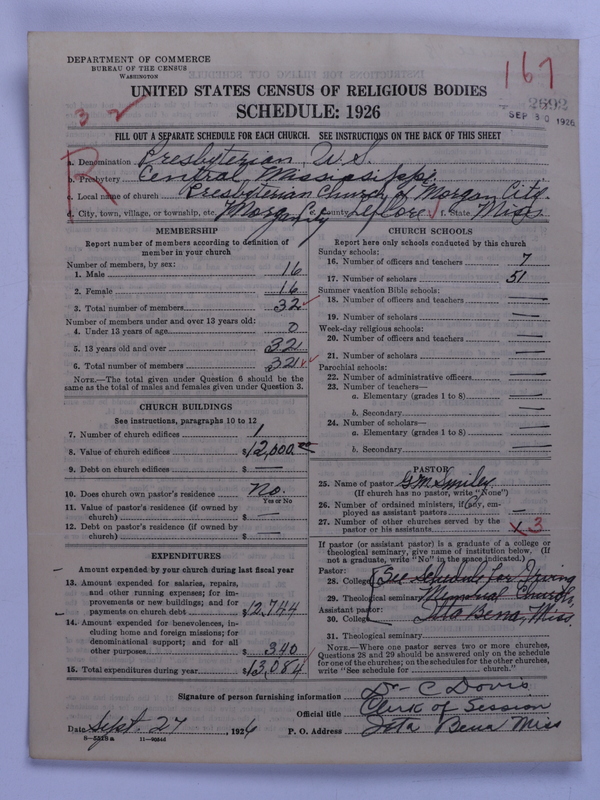 DEPARTMENT OF COMMERCE
BUREAU OF THE CENSUS
WASHINGTON
167
UNITED STATES CENSUS OF RELIGIOUS BODIES
SCHEDULE: 1926
2692
SEP 30 1926
3 2
FILL OUT A SEPARATE SCHEDULE FOR EACH CHURCH. SEE INSTRUCTIONS ON THE BACK OF THIS SHEET
R
a. Denomination Presbyterian, U.S.
b. Presbytery Central Mississippi.
c. Local name of church Presbyterian Church of Morgan City.
d. City, town, village, or township, etc. Morgan City e. County Leflore f. State Miss.
MEMBERSHIP
Report number of members according to definition of
member in your church
Number of members, by sex:
1. Male 16
2. Female 16
3. Total number of members 32
Number of members under and over 13 years old:
4. Under 13 years of age 0
5. 13 years old and over 32
6. Total number of members 32
NOTE.—The total given under Question 6 should be the
same as the total of males and females given under Question 3.
CHURCH BUILDINGS
See instructions, paragraphs 10 to 12
7. Number of church edifices 1
8. Value of church edifices $12,000
9. Debt on church edifices $ —
10. Does church own pastor's residence No.
Yes or No
11. Value of pastor's residence (if owned by
church) $ —
12. Debt on pastor's residence (if owned by
church) $ —
EXPENDITURES
Amount expended by your church during last fiscal year
13. Amount expended for salaries, repairs,
and other running expenses; for im-
provements or new buildings; and for
payments on church debt $2,744
14. Amount expended for benevolences, in-
cluding home and foreign missions; for
denominational support; and for all
other purposes $ 340
15. Total expenditures during year $3,084
CHURCH SCHOOLS
Report here only schools conducted by this church
Sunday schools:
16. Number of officers and teachers 7
17. Number of scholars 51
Summer vacation Bible schools:
18. Number of officers and teachers —
19. Number of scholars —
Week-day religious schools:
20. Number of officers and teachers —
21. Number of scholars —
Parochial schools:
22. Number of administrative officers —
23. Number of teachers—
a. Elementary (grades 1 to 8) —
b. Secondary —
24. Number of scholars—
a. Elementary (grades 1 to 8) —
b. Secondary —
PASTOR
25. Name of pastor G M Smiley
(If church has no pastor, write "None")
26. Number of ordained ministers, if any, em-
ployed as assistant pastors —
27. Number of other churches served by the
pastor or his assistants x 3
If pastor (or assistant pastor) is a graduate of a college or
theological seminary, give name of institution below. (If
not a graduate, write "No" in the space indicated.)
Pastor:
28. College See schedule for Irving
29. Theological seminary Memorial Church,
Assistant pastor:
30. College Itta Bena, Miss.
31. Theological seminary
NOTE.—Where one pastor serves two or more churches,
Questions 28 and 29 should be answered only on the schedule
for one of the churches; on the schedules for the other churches,
write "See schedule for church."
Signature of person furnishing information Dr. C Davis
Official title Clerk of Session
Date Sept. 27, 1926 P. O. Address Itta Bena Miss
8—5518a 11—90846